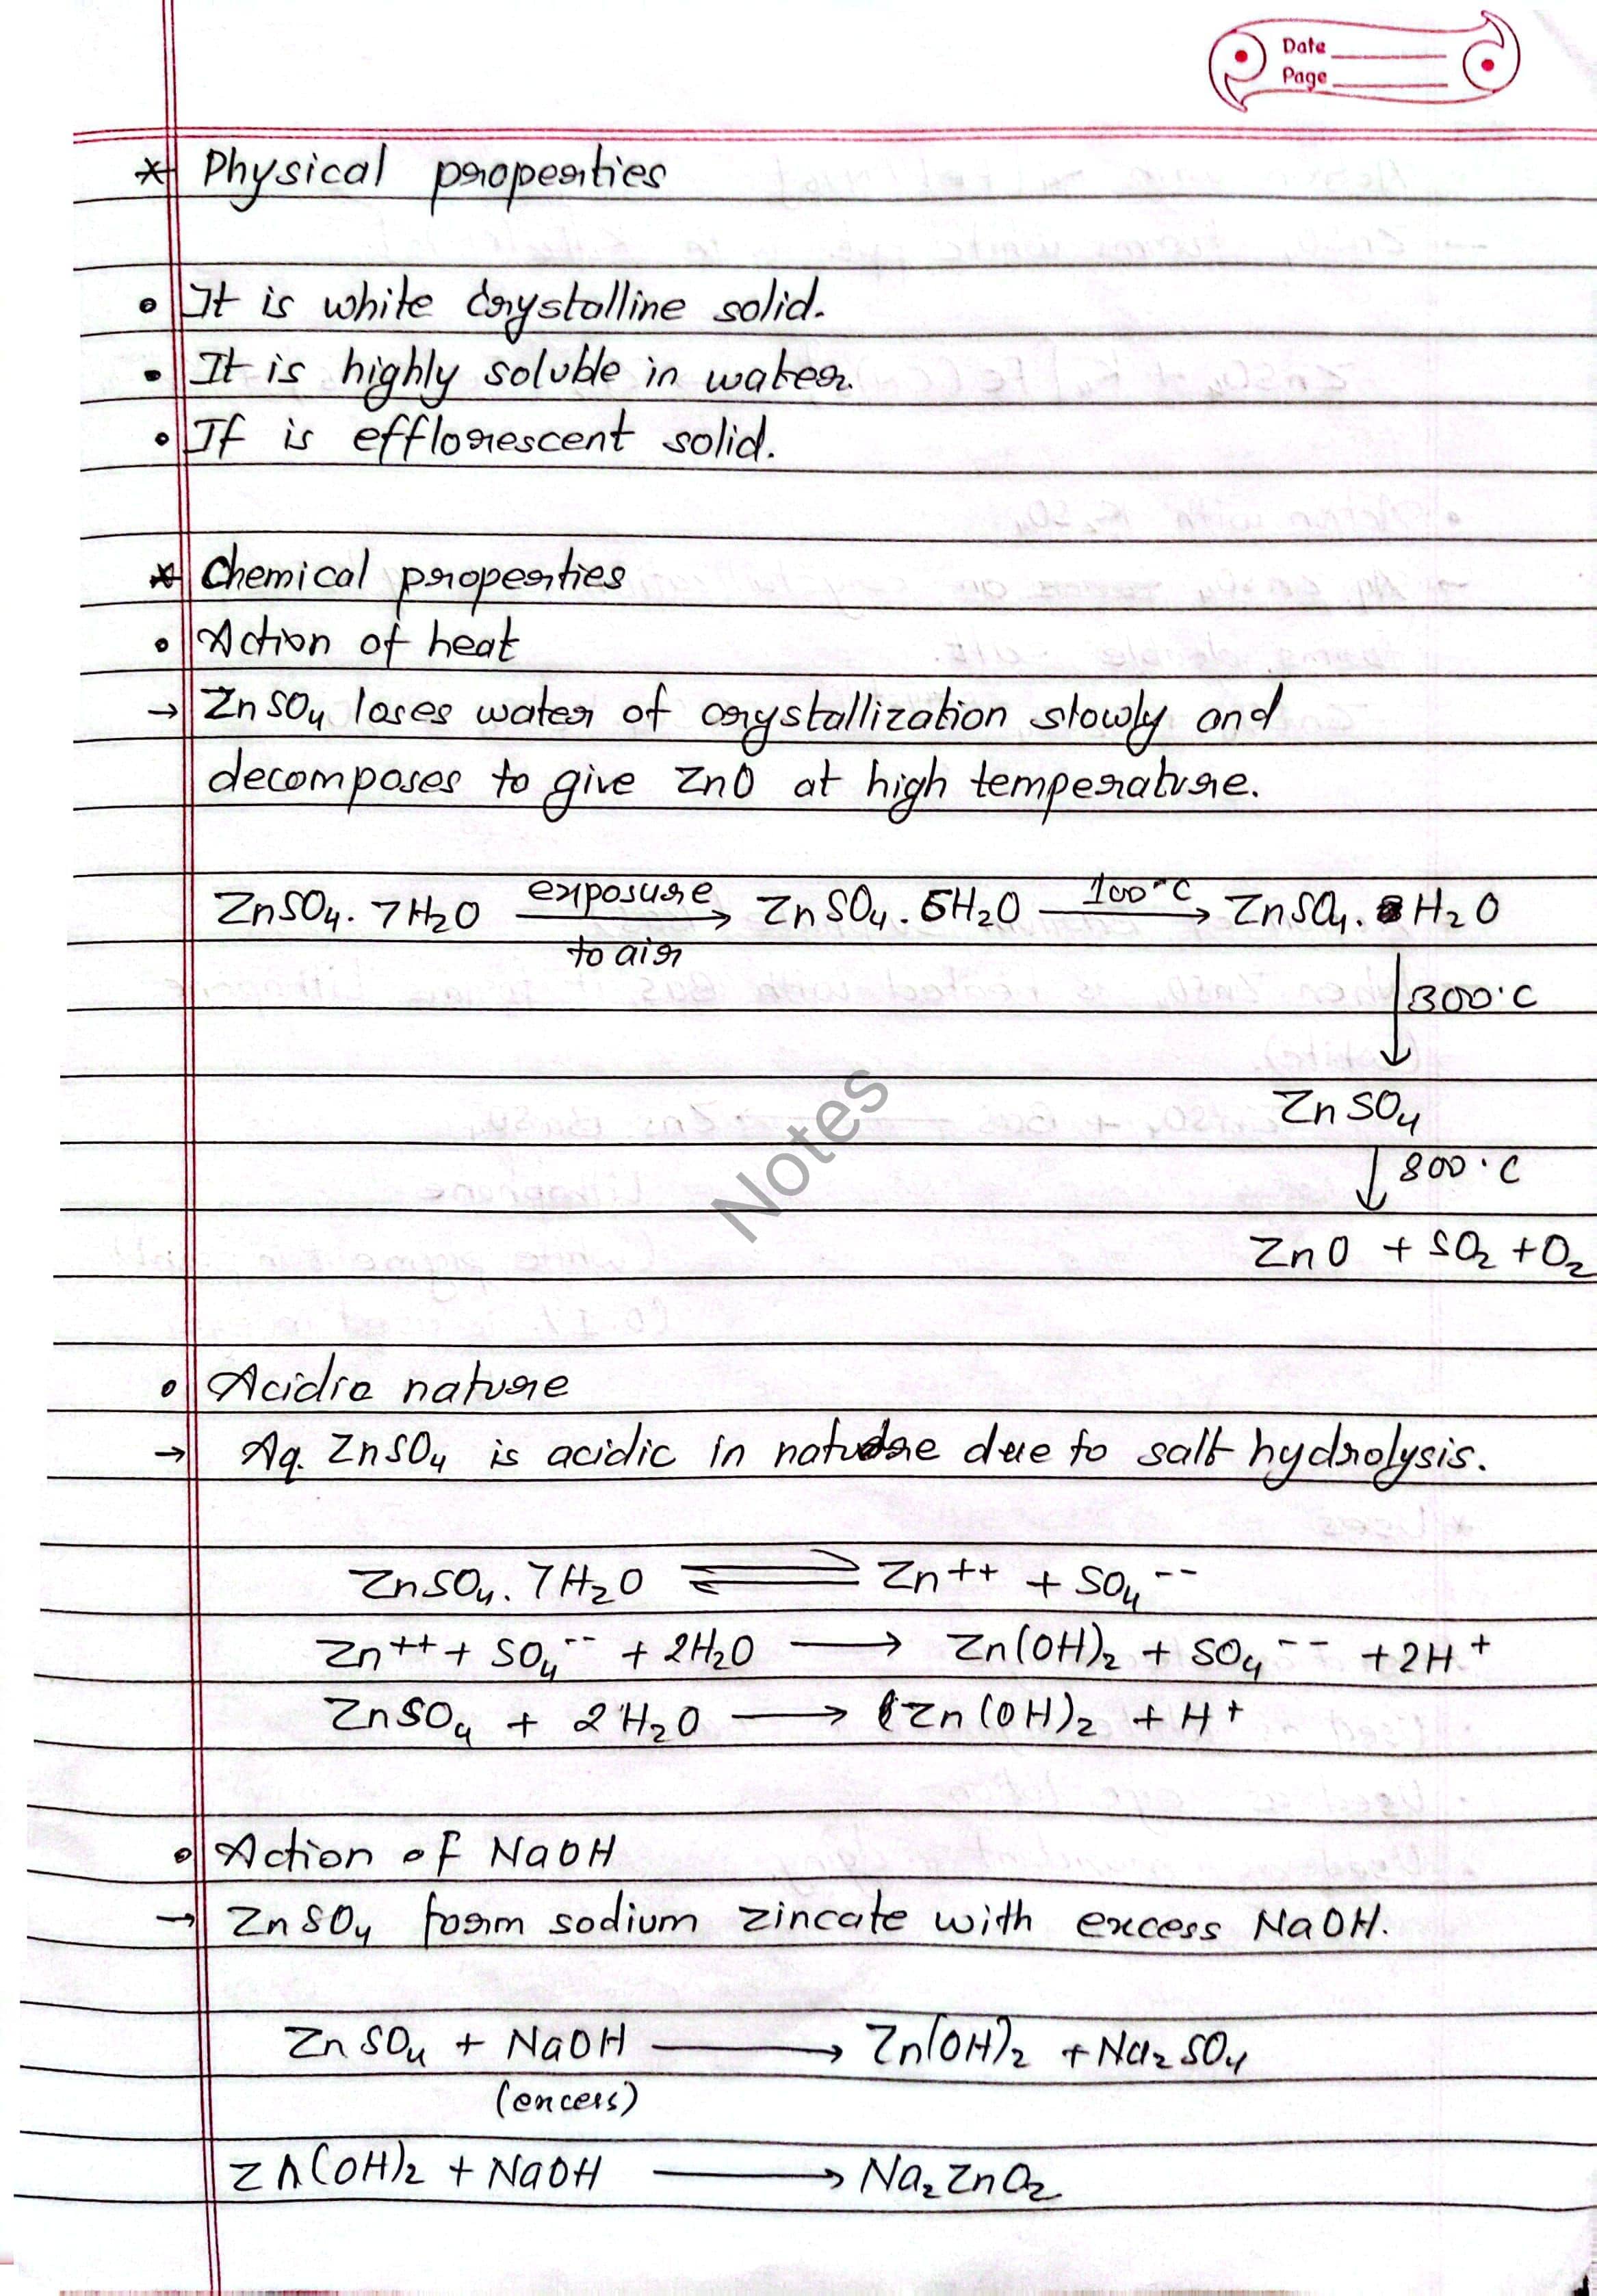 Date
Page
* Physical properties
• It is white crystalline solid.
• It is highly soluble in water.
• If is efflorescent solid.
* Chemical properties
• Action of heat
→ ZnSO₄ loses water of crystallization slowly and
decomposes to give ZnO at high temperature.
ZnSO₄. 7H₂O exposure to air → ZnSO₄. 6H₂O 100°C → ZnSO₄. H₂O
↓ 300°C
ZnSO₄
↓ 800°C
ZnO + SO₂ + O₂
• Acidic nature
→ Aq. ZnSO₄ is acidic in nature due to salt hydrolysis.
ZnSO₄. 7H₂O ⇌ Zn⁺⁺ + SO₄⁻⁻
Zn⁺⁺ + SO₄⁻⁻ + 2H₂O → Zn(OH)₂ + SO₄⁻⁻ + 2H⁺
ZnSO₄ + 2H₂O → Zn(OH)₂ + H⁺
• Action of NaOH
→ ZnSO₄ form sodium zincate with excess NaOH.
ZnSO₄ + NaOH → Zn(OH)₂ + Na₂SO₄
(excess)
Zn(OH)₂ + NaOH → Na₂ZnO₂
Notes